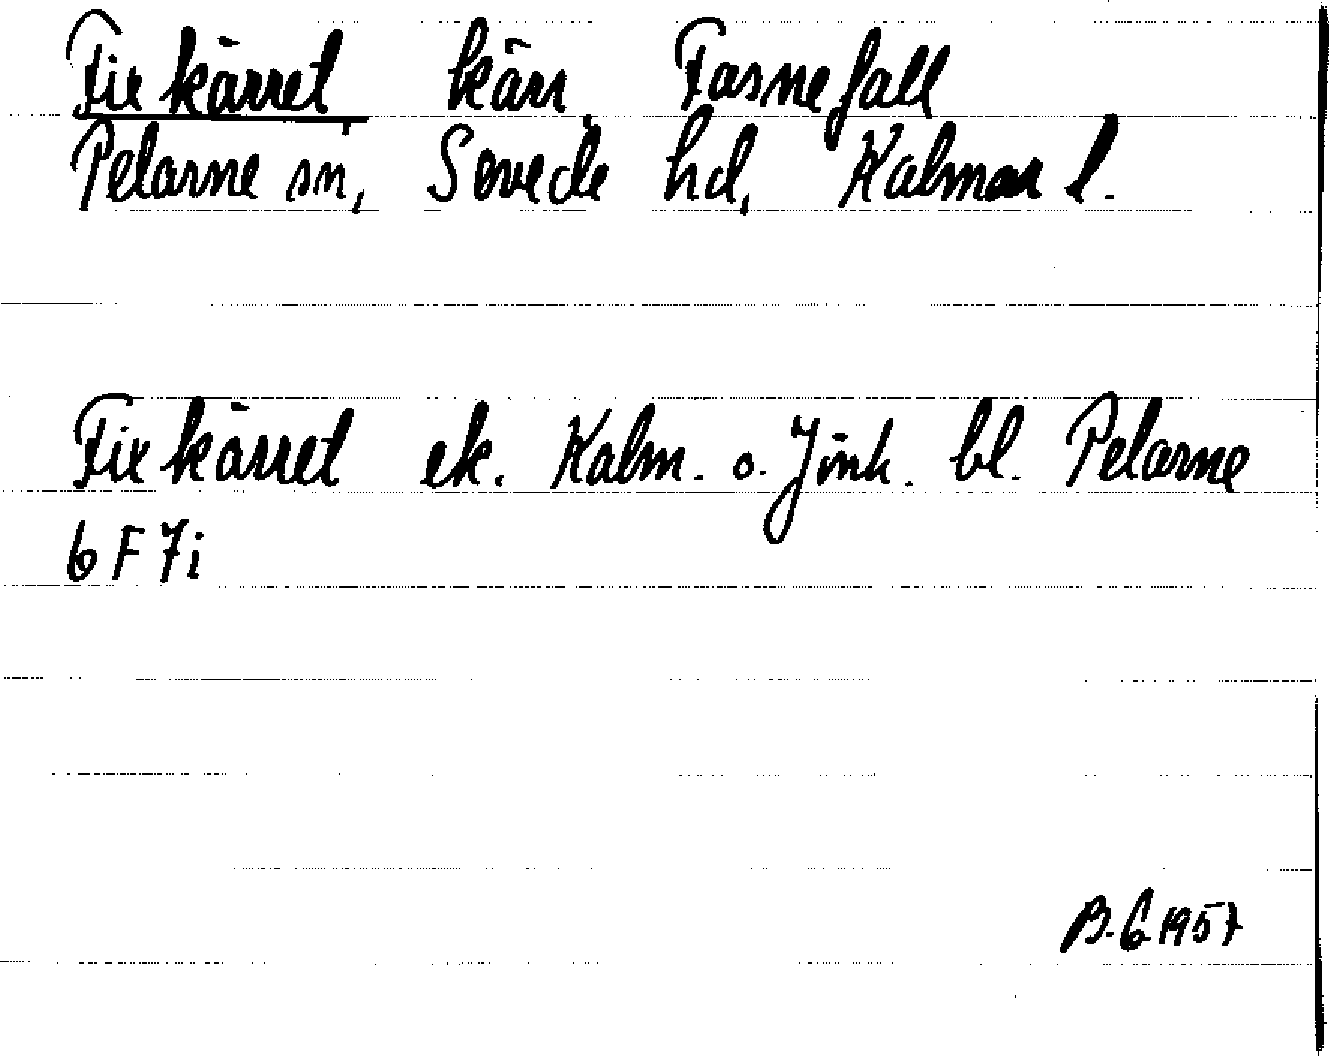 Fixkärret kärr, Fasnefall
Pelarne sn, Sevede hd, Kalmar l.
Fixkärret ek. Kalm. o. Jönk. bl. Pelarne
6 F 7i
B.G 1957